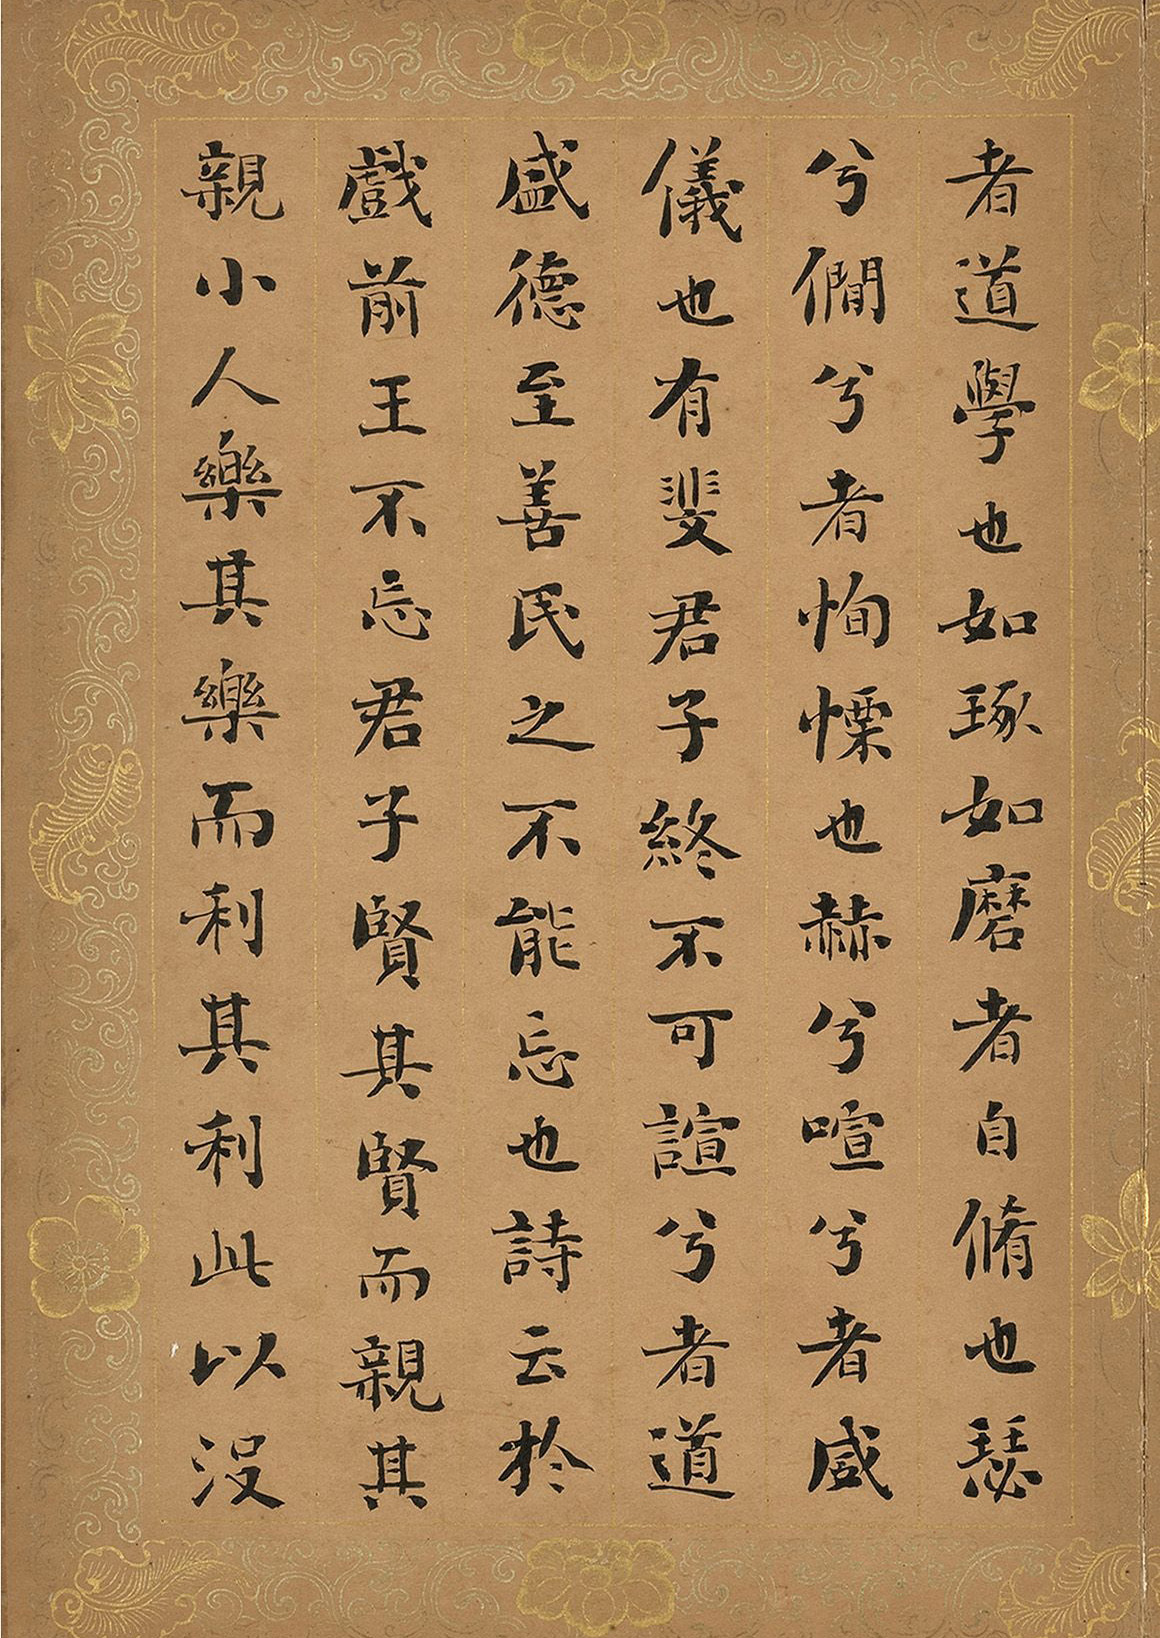 者道學也如琢如磨者自脩也瑟
兮僩兮者恂慄也赫兮喧兮者威
儀也有斐君子終不可諠兮者道
盛德至善民之不能忘也詩云於
戲前王不忘君子賢其賢而親其
親小人樂其樂而利其利此以沒